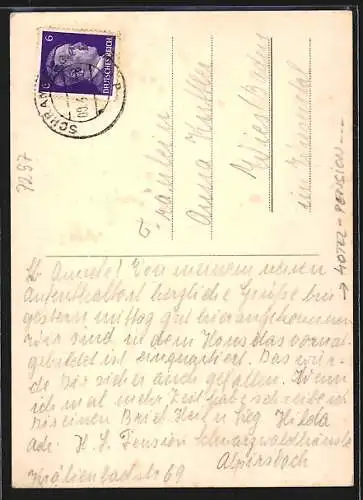 6
DEUTSCHES REICH
SCHRAMB
7297
Fräulein
Anna
Wiesbaden
im
→ HOTEL-PENSION...
Lb Annele! Von meinem neuen
Aufenthaltsort herzliche Grüße bin
gestern mittag gut hier angekommen
wir sind in dem Haus das vorn
gebildet ist einquartiert. Das wür-
de dir sicher auch gefallen. Wenn
ich mal mehr Zeit habe schreibe ich
dir einen Brief. Heil u Sieg Hilda
Adr. H. S. Pension Schwarzwaldhäusle
Alpirsbach
Krähenbadstr 69